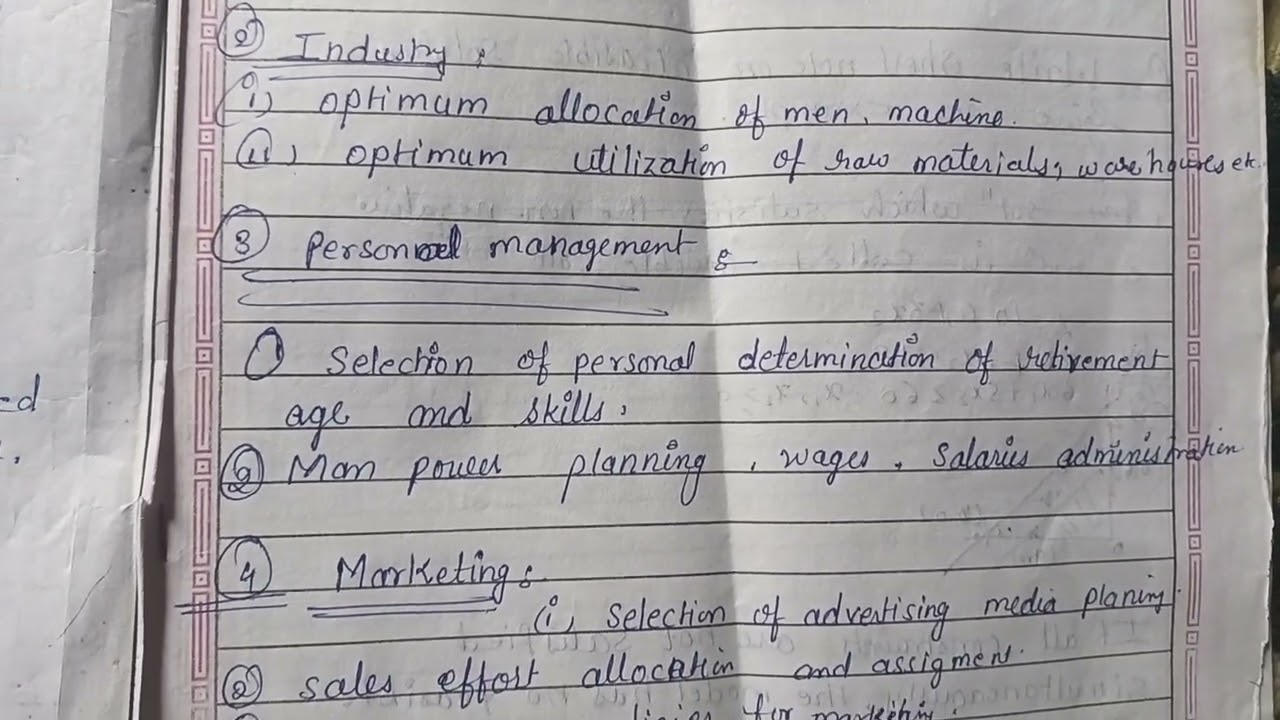 ② Industry :
(i) optimum allocation of men, machine.
(ii) optimum utilization of raw materials, ware houses etc.
③ Personnel management :-
① Selection of personal determination of retirement
age and skills,
② Man power planning, wages, Salaries administration
④ Marketing :
(i) Selection of advertising media planing.
② sales effort allocation and assigment.
for marketing.
ed